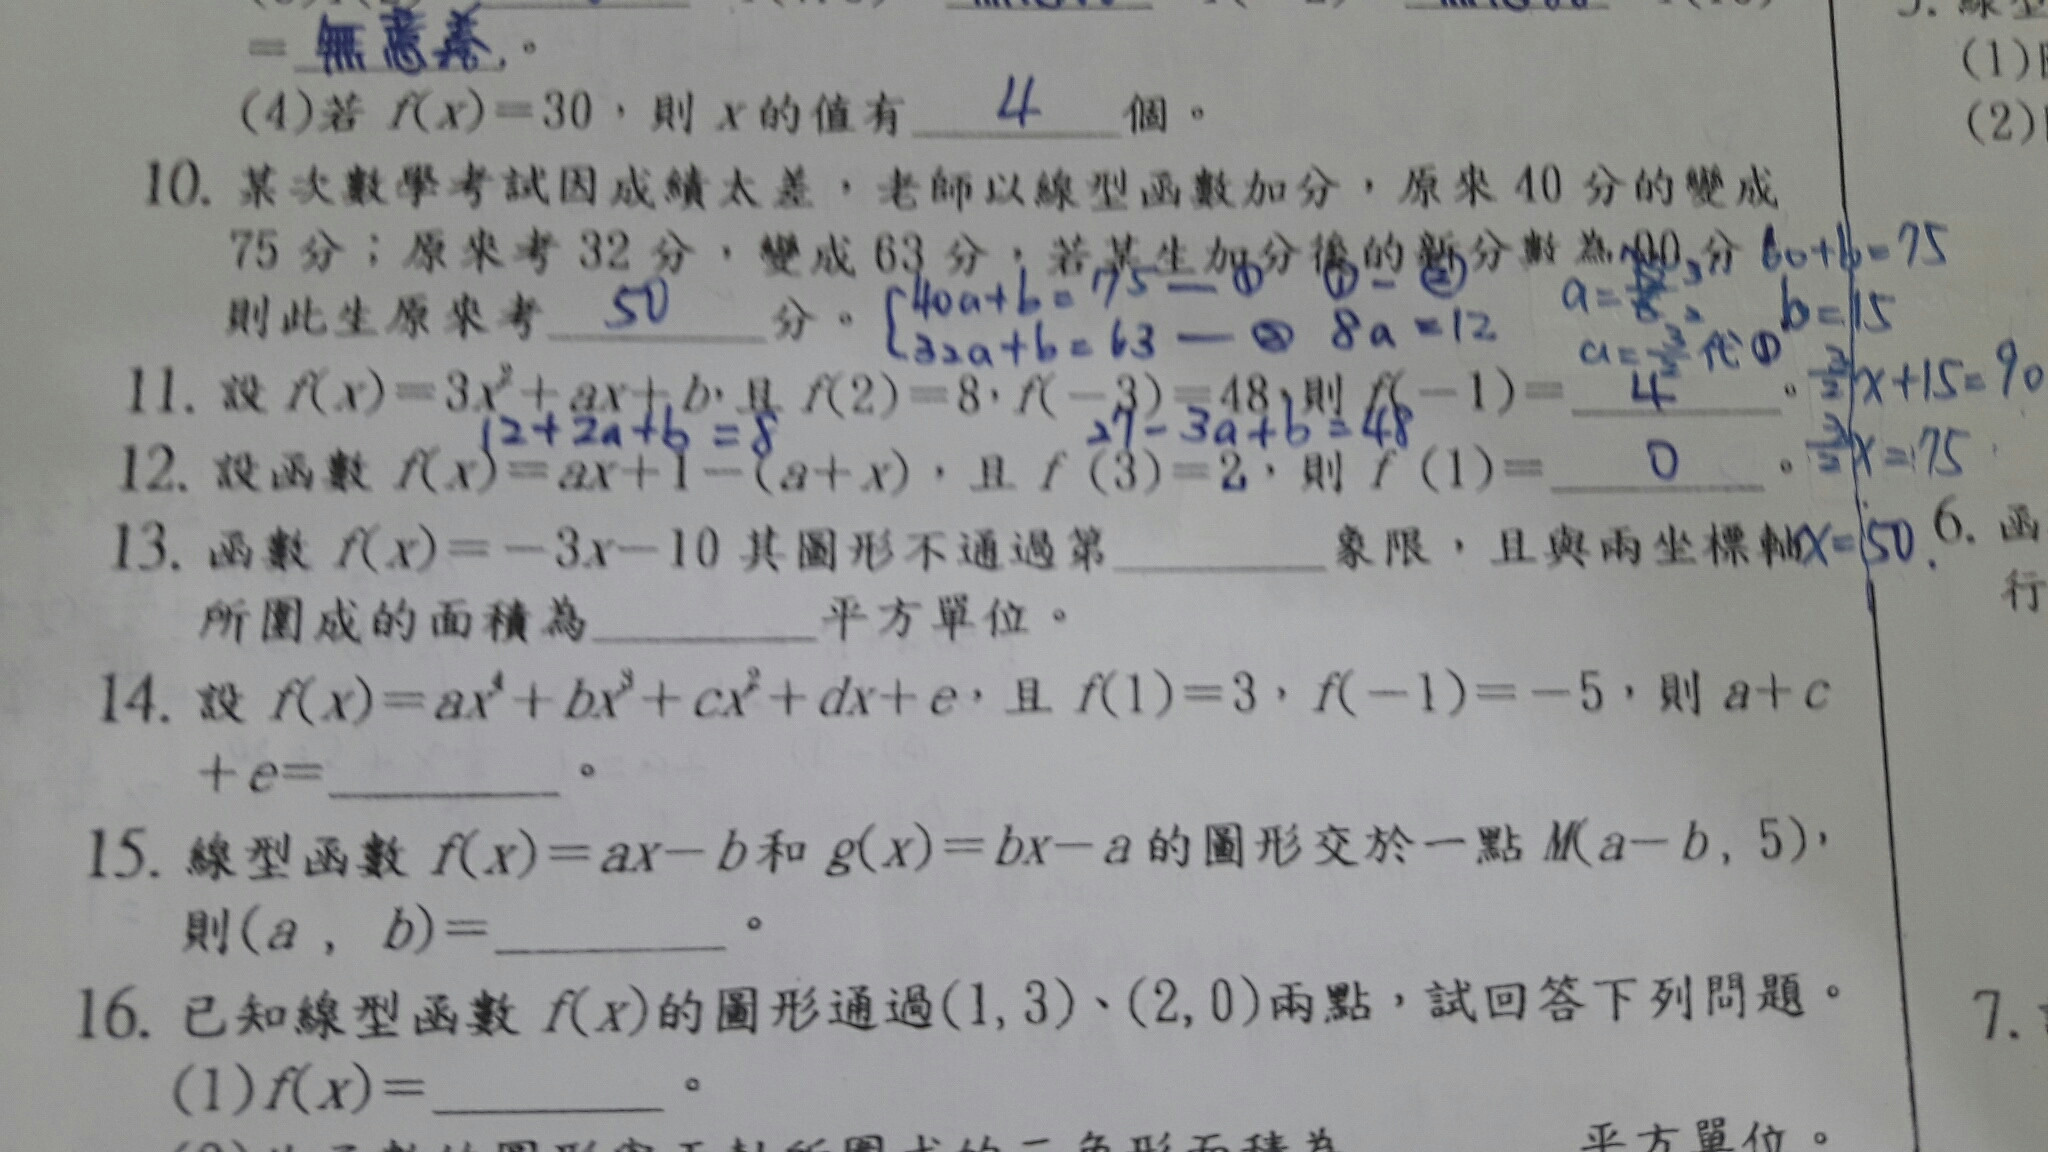 =無意義。
(4)若 f(x)=30,則 x 的值有 4 個。
10. 某次數學考試因成績太差,老師以線型函數加分,原來 40 分的變成
75 分;原來考 32 分,變成 63 分,若某生加分後的新分數為 90 分
則此生原來考 50 分。
40a+b=75—① ①-②
32a+b=63—② 8a=12
a=3/2代①
60+b=75
b=15
3/2x+15=90
3/2x=75
x=50.
11. 設 f(x)=3x²+ax+b,且 f(2)=8,f(-3)=48,則 f(-1)= 4 。
12+2a+b=8 27-3a+b=48
12. 設函數 f(x)=ax+1-(a+x),且 f (3)=2,則 f (1)= 0 。
13. 函數 f(x)=-3x-10 其圖形不通過第 象限,且與兩坐標軸
所圍成的面積為 平方單位。
14. 設 f(x)=ax⁴+bx³+cx²+dx+e,且 f(1)=3,f(-1)=-5,則 a+c
+e= 。
15. 線型函數 f(x)=ax-b和 g(x)=bx-a 的圖形交於一點 M(a-b, 5),
則(a , b)= 。
16. 已知線型函數 f(x)的圖形通過(1,3)、(2,0)兩點,試回答下列問題。
(1)f(x)= 。
平方單位。
(1)
(2)
6. 函
行
7.